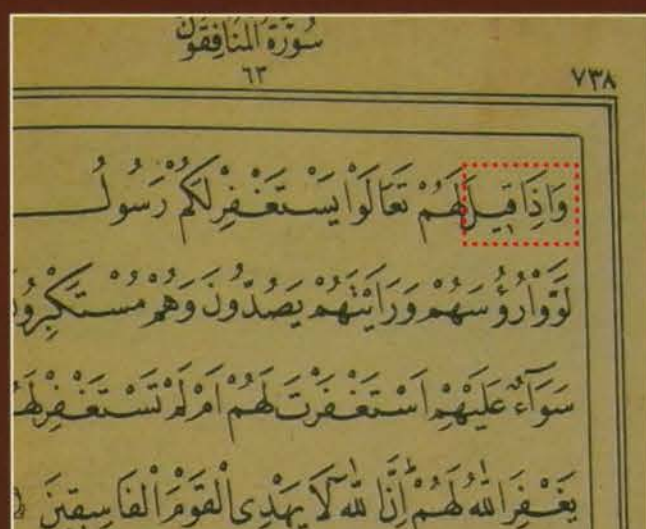 سُورَةُ الْمُنَافِقُونَ
٦٣
٧٣٨
وَاِذَا قٖيلَ لَهُمْ تَعَالَوْا يَسْتَغْفِرْ لَكُمْ رَسُولُ
لَوَّوْا رُؤُسَهُمْ وَرَاَيْتَهُمْ يَصُدُّونَ وَهُمْ مُسْتَكْبِرُونَ
سَوَٓاءٌ عَلَيْهِمْ اَسْتَغْفَرْتَ لَهُمْ اَمْ لَمْ تَسْتَغْفِرْ لَهُ
يَغْفِرَ اللّٰهُ لَهُمْ اِنَّ اللّٰهَ لَا يَهْدِي الْقَوْمَ الْفَاسِقٖينَ